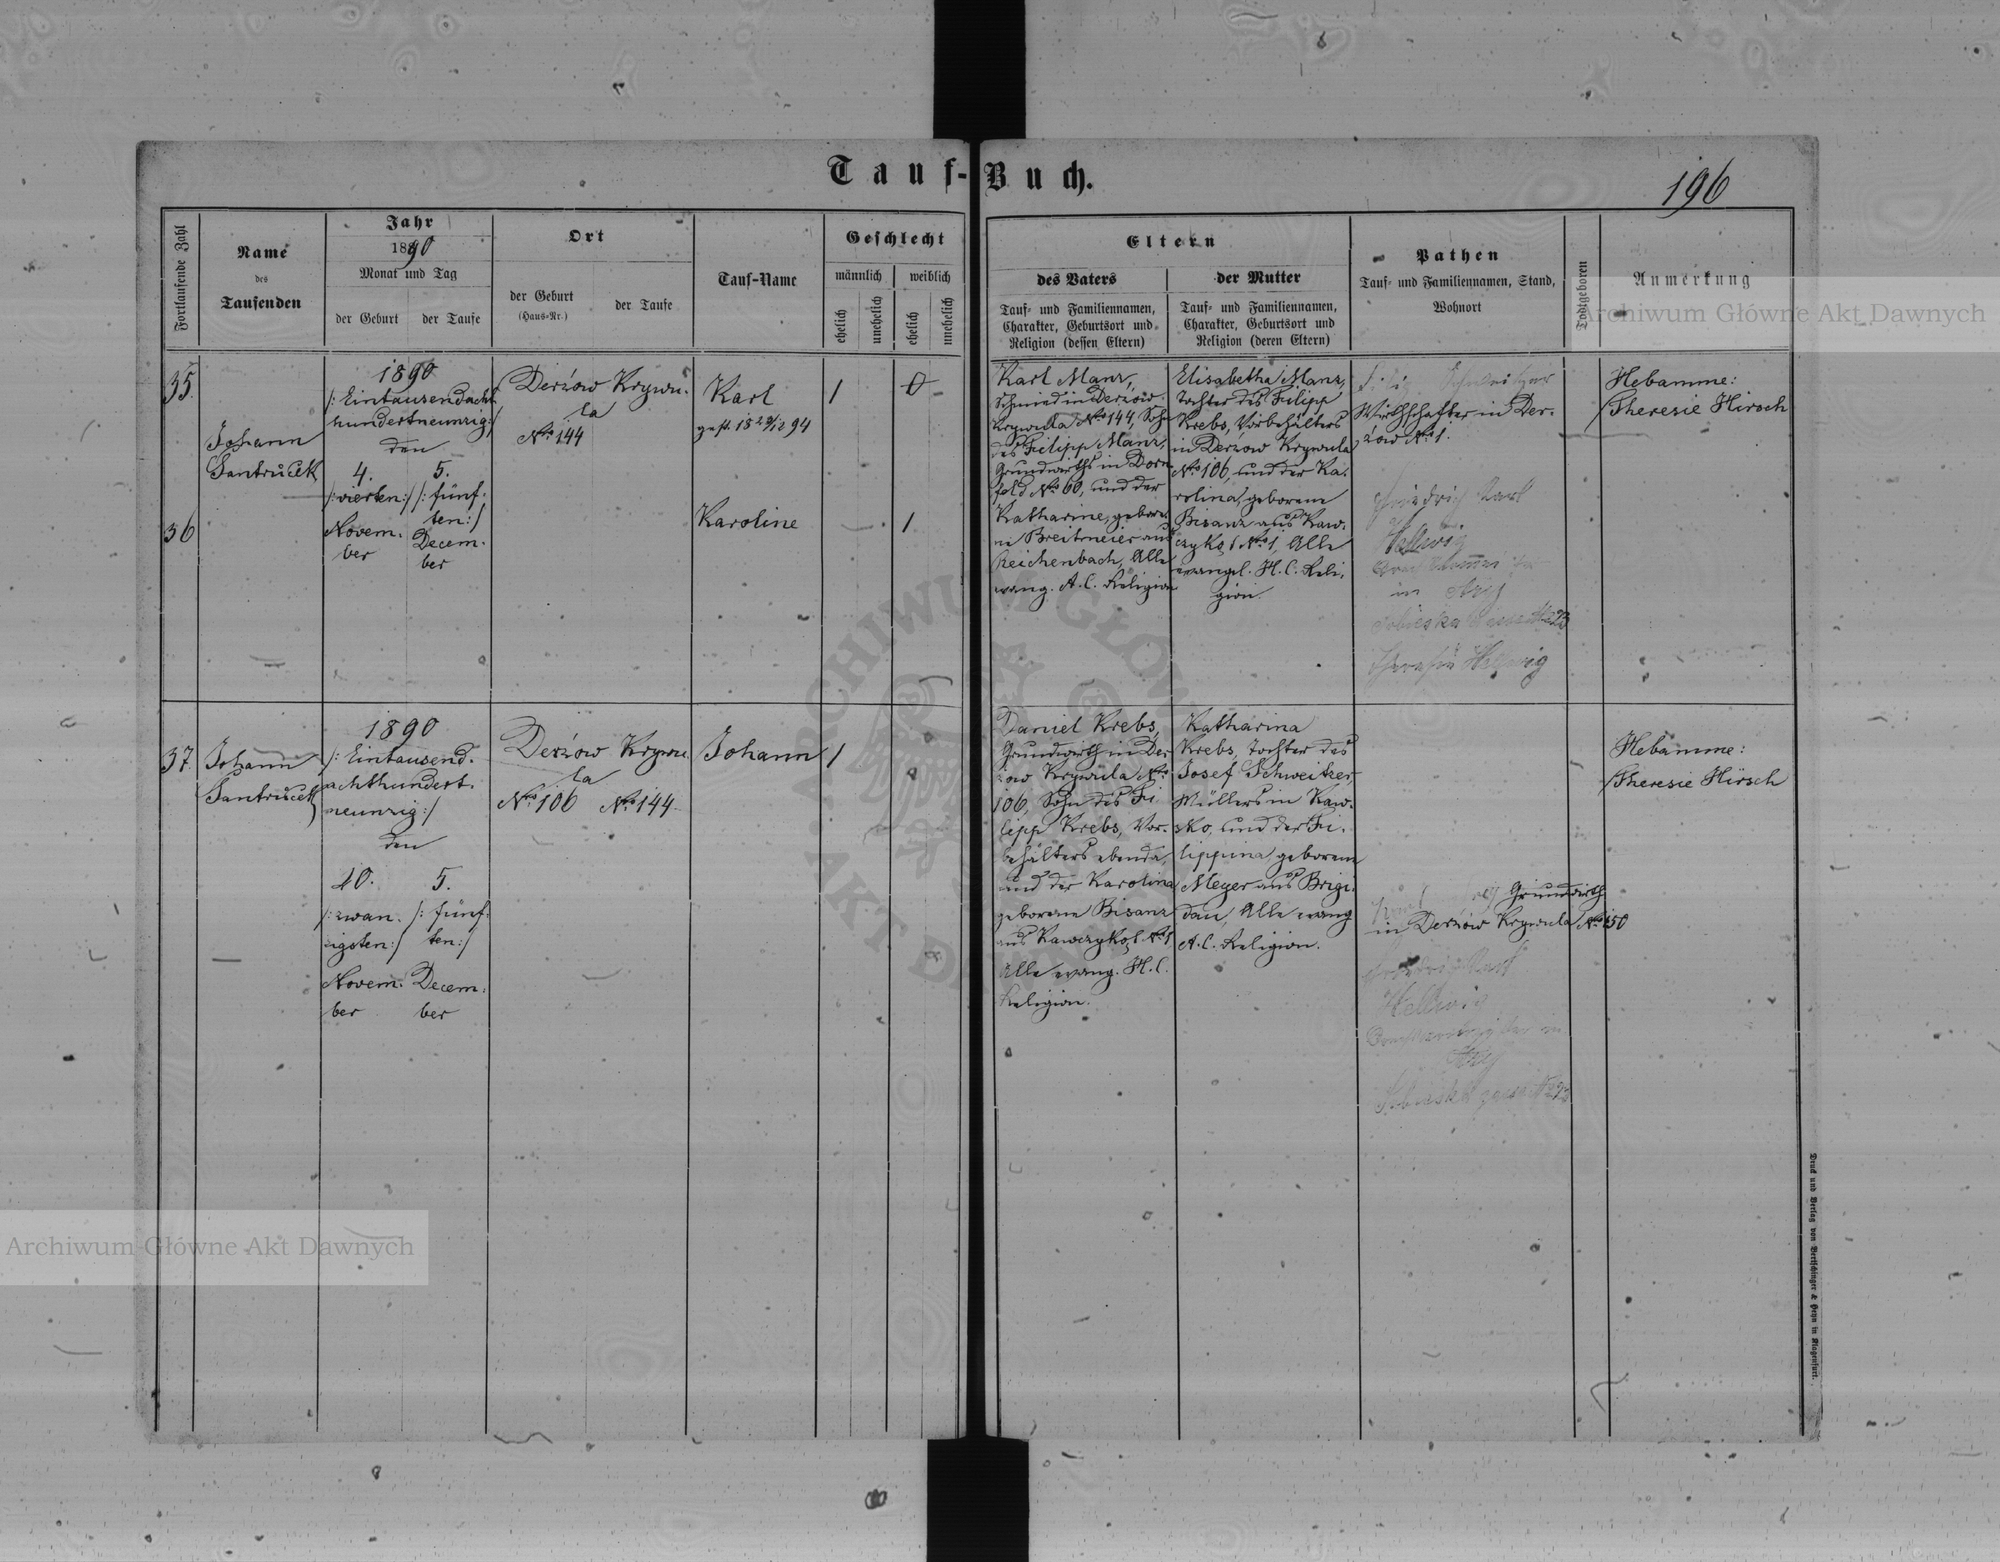 Tauf-Buch.
196
Fortlaufende Zahl
Name
des
Taufenden
Jahr
1890
Monat und Tag
der Geburt
der Taufe
Ort
der Geburt
(Haus-Nr.)
der Taufe
Tauf-Name
Geschlecht
männlich
weiblich
ehelich
unehelich
ehelich
unehelich
Eltern
des Vaters
Tauf- und Familiennamen,
Charakter, Geburtsort und
Religion (dessen Eltern)
der Mutter
Tauf- und Familiennamen,
Charakter, Geburtsort und
Religion (deren Eltern)
Pathen
Tauf- und Familiennamen, Stand,
Wohnort
Todtgeboren
Anmerkung
35.
36
Johann
Santruček
1890
/: Eintausendacht
hundertneunzig :/
den
4.
/: vierten :/
Novem-
ber
5.
/: fünf-
ten :/
Decem-
ber
Derżow Krywu-
la
No 144
Karl
gest. 18 29/12 94
Karoline
1
0
1
Karl Manz,
Schmied in Derżow-
Krywula No 144, Sohn
des Filipp Manz,
Grundwirths in Dorn
feld No 60, und der
Katharine, gebore-
ne Breitmeier aus
Reichenbach, Alle
evang. A. C. Religion
Elisabetha Manz,
Tochter des Filipp
Krebs, Vorbehälters
in Derżow Krywula
No 106, und der Ka-
rolina, geborene
Bisanz aus Kaw-
czykąt No 1, Alle
evangel. H. C. Reli-
gion.
Schweitzer
Wirthschafter in Der-
żów No 1.
Friedrich Karl
Hellwig
in Stryj
Sobieska
Theresia Hellwig
Hebamme:
Theresie Hirsch
37.
Johann
Santruček
1890
/: Eintausend-
achthundert-
neunzig :/
den
20.
/: zwan-
zigsten :/
Novem-
ber
5.
/: fünf-
ten :/
Decem-
ber
Derżow Krywu
la
No 106 No 144
Johann
1
Daniel Krebs,
Grundwirth in Der-
żow Krywula No
106, Sohn des Fi
lipp Krebs, Vor-
behälters ebenda,
und der Karolina
geborene Bisanz
aus Kawczykąt No 1,
Alle evang. H. C.
Religion.
Katharina
Krebs, Tochter des
Josef Schweitzer,
Müllers in Kaw-
sko, und der Fi-
lippina, geborene
Meyer aus Brigi-
dau, Alle evang
A. C. Religion.
Grundwirth
in Derżow Krywula No 150
Friedrich Karl
Hellwig
Stryj
Hebamme:
Theresie Hirsch
Druck und Verlag von Bertschinger & Heyn in Klagenfurt.
Archiwum Główne Akt Dawnych
Archiwum Główne Akt Dawnych